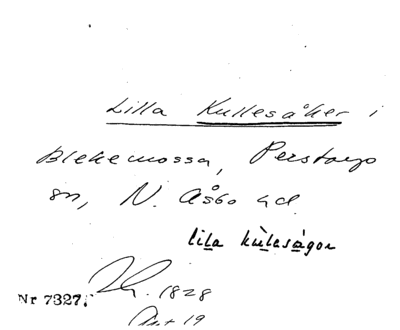 Lilla Kullesåker i
Blekemossa, Perstorps
sn, N. Åsbo hd.
lila kùlesågor
1828
Nr 7327.
Art 19